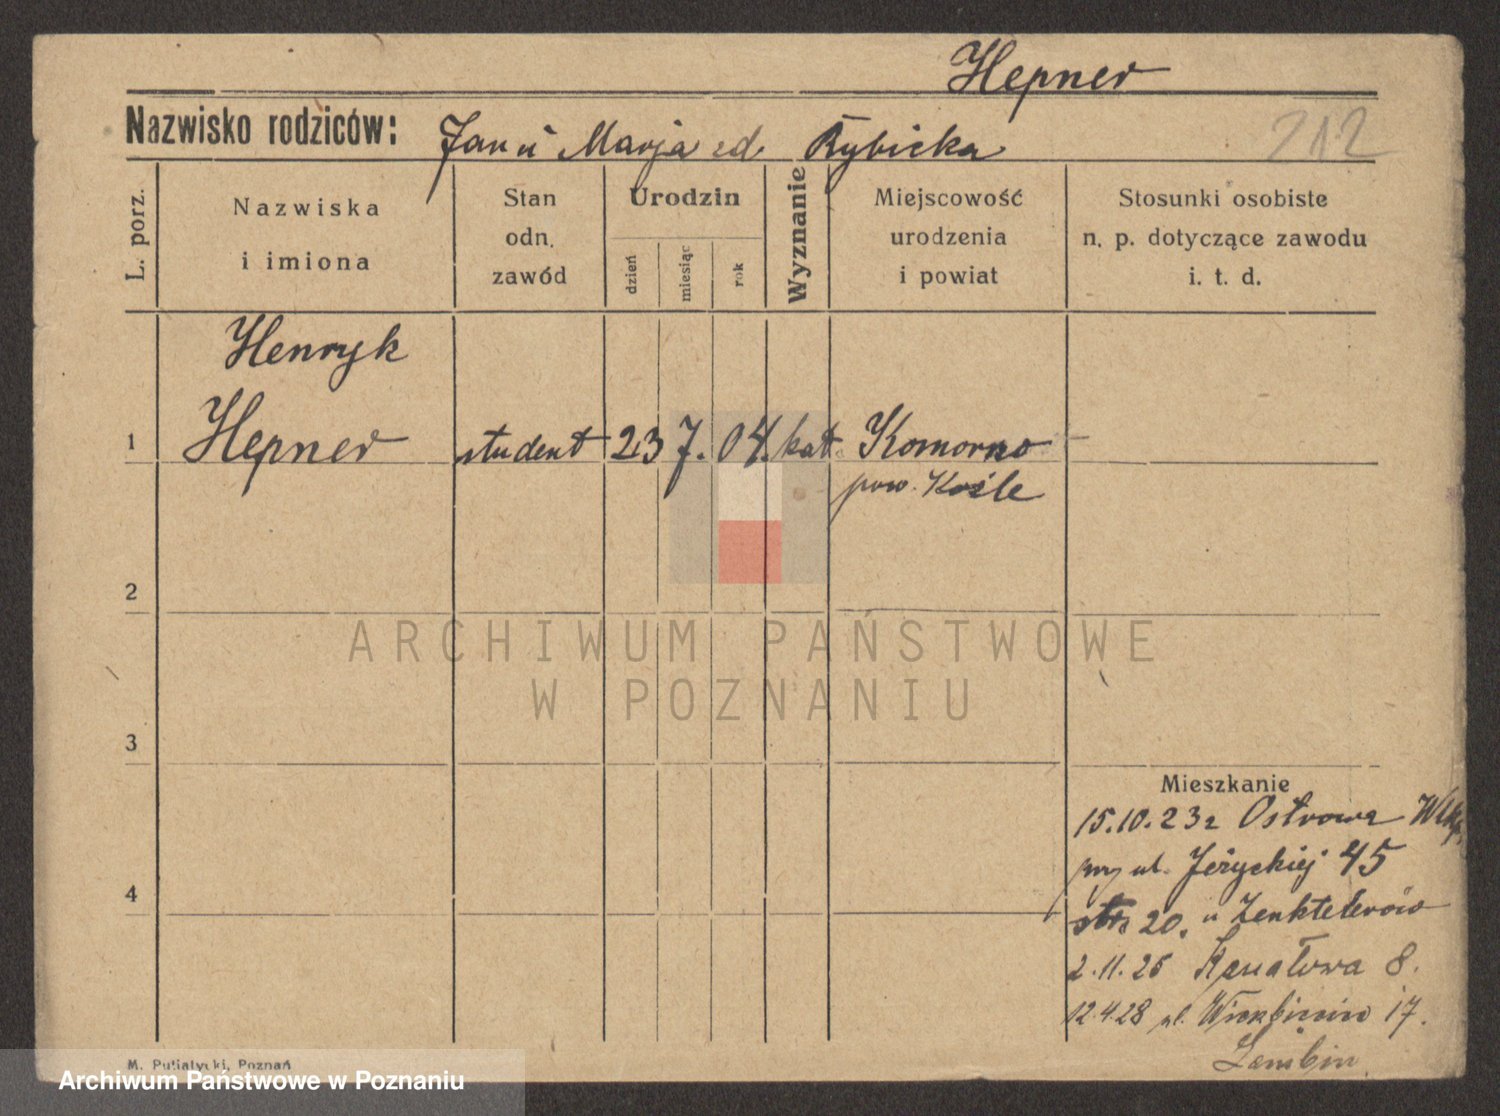 Hepner
Nazwisko rodziców: Jan i Marja zd. Rybicka
212
L. porz.
Nazwiska
i imiona
Stan
odn.
zawód
Urodzin
dzień
miesiąc
rok
Wyznanie
Miejscowość
urodzenia
i powiat
Stosunki osobiste
n. p. dotyczące zawodu
i. t. d.
Henryk
1 Hepner student 23 7. 04. kat. Komorno
pow. Koźle
2
ARCHIWUM PAŃSTWOWE
W POZNANIU
3
Mieszkanie
15.10.23 z Ostrowa Wlkp.
przy ul. Jeżyckiej 45
4
20. u Zenktelerów
2.11.25 Kanałowa 8.
12.4.28 17.
M. Putiatycki, Poznań
Archiwum Państwowe w Poznaniu